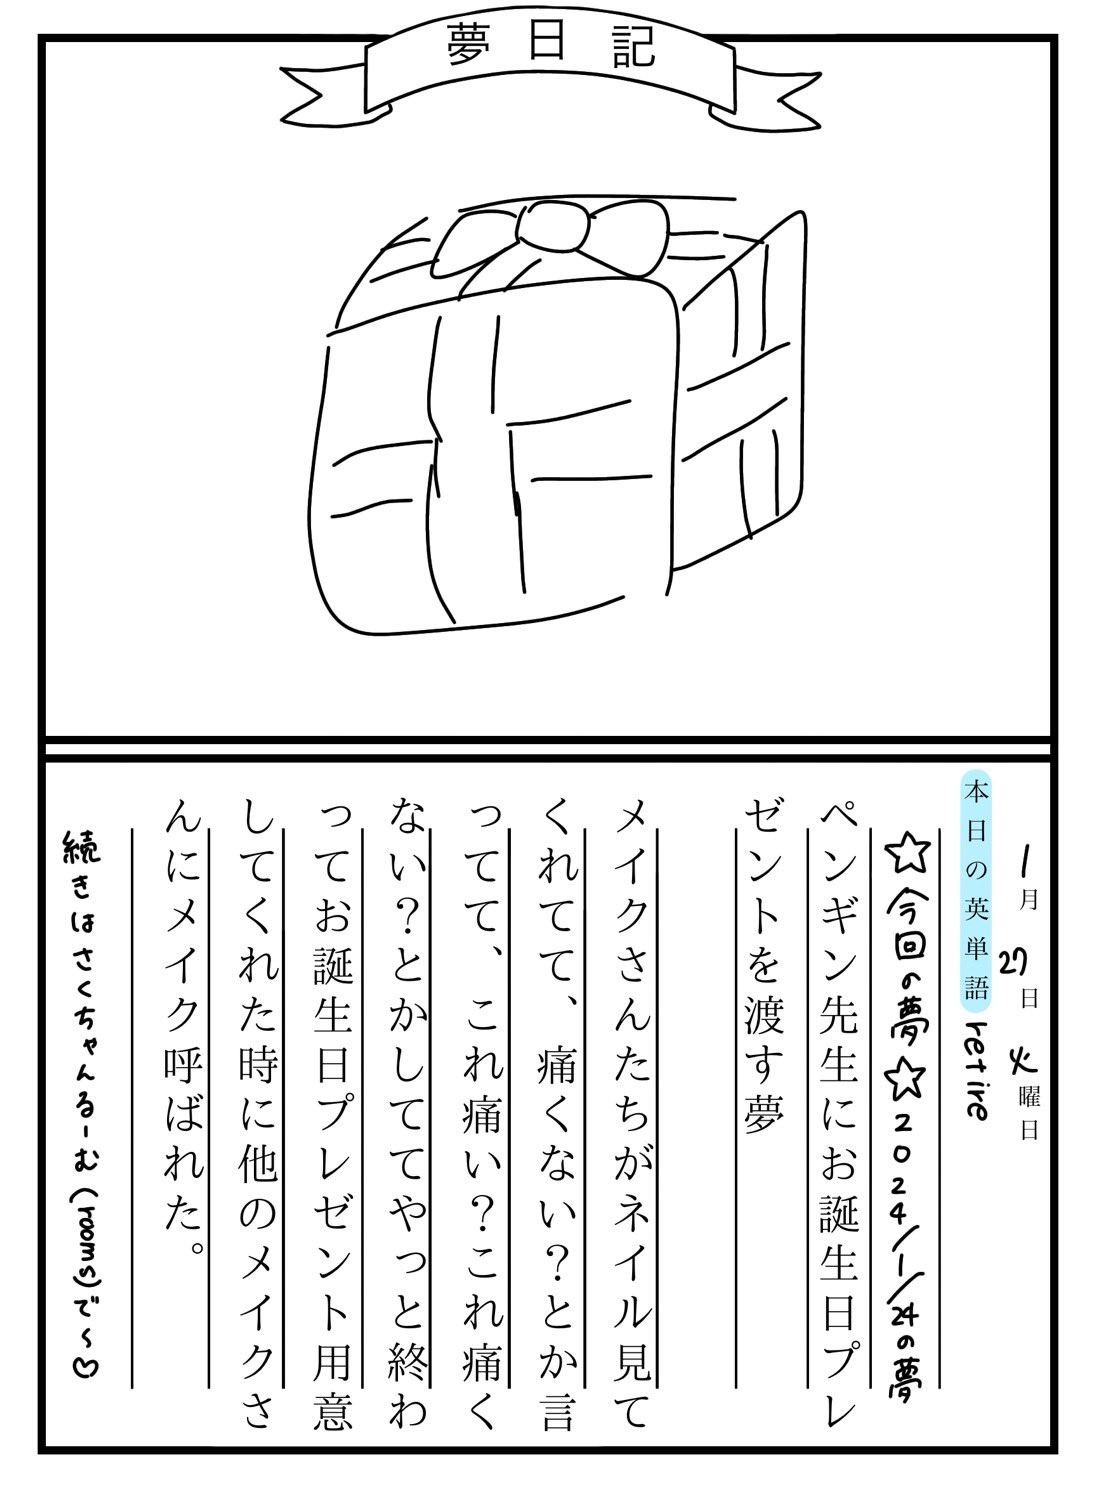 夢日記
1月27日火曜日
本日の英単語 retire
☆今回の夢☆2024/1/24の夢
ペンギン先生にお誕生日プレ
ゼントを渡す夢
メイクさんたちがネイル見て
くれてて、痛くない？とか言
ってて、これ痛い？これ痛く
ない？とかしててやっと終わ
ってお誕生日プレゼント用意
してくれた時に他のメイクさ
んにメイク呼ばれた。
続きはさくちゃんるーむ(rooms)で〜♡